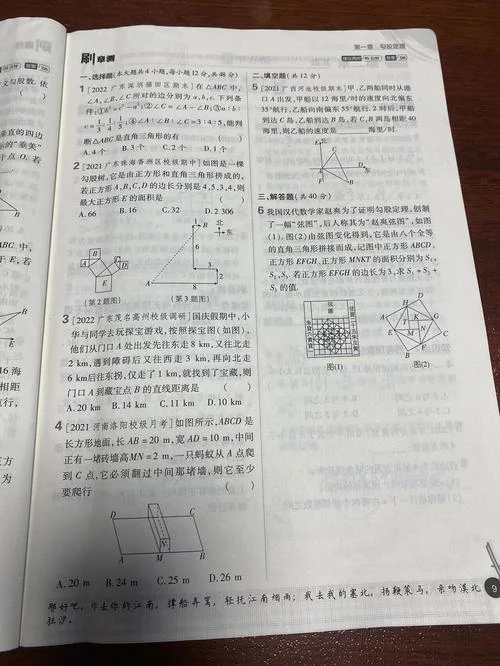 刷章测
第一章 勾股定理
一、选择题(本大题共4小题,每小题12分,共48分)
1 [2022广东深圳福田区期末]在△ABC中,
∠A,∠B,∠C所对的边分别为a,b,c.下列条
件:①b²=c²-a²;②∠C=∠A-∠B;③a:b:
断△ABC是直角三角形的有 ( )
A.4个 B.3个 C.2个 D.1个
2 [2021广东珠海香洲区校级期中]如图是一棵
勾股树,它是由正方形和直角三角形拼成的,
若正方形A,B,C,D的边长分别是4,5,3,4,则
最大正方形E的面积是 ( )
A.66 B.16 C.32 D.2 306
A
B
C
D
E
(第2题图)
A
B
1
6
2
8
北
东
(第3题图)
3 [2022广东茂名高州校级调研]国庆假期中,小
华与同学去玩探宝游戏,按照探宝图(如图),
他们从门口A处出发先往东走8 km,又往北走
2 km,遇到障碍后又往西走3 km,再向北走
6 km后往东拐,仅走了1 km,就找到了宝藏,则
门口A到藏宝点B的直线距离是 ( )
A.20 km B.14 km C.11 km D.10 km
4 [2021河南洛阳校级月考]如图所示,ABCD是
长方形地面,长AB=20 m,宽AD=10 m,中间
正有一堵砖墙高MN=2 m,一只蚂蚁从A点爬
到C点,它必须翻过中间那堵墙,则它至少
要爬行 ( )
D
C
N
A
M
B
A.20 m B.24 m C.25 m D.26 m
二、填空题(共12分)
5 [2021广西河池校级期中]甲、乙两船同时从港
口A出发,甲船以12海里/时的速度向北偏东
35°航行,乙船向南偏东55°航行.2时后,甲船
到达C岛,乙船到达B岛,若C,B两岛相距40
海里,则乙船的速度是 海里/时.
三、解答题(共40分)
6 我国汉代数学家赵爽为了证明勾股定理,创制
了一幅“弦图”,后人称其为“赵爽弦图”,如图
(1).图(2)由弦图变化得到,它是由八个全等
的直角三角形拼接而成,记图中正方形ABCD、
正方形EFGH、正方形MNKT的面积分别为S₁、
S₂、S₃.若正方形EFGH的边长为3,求S₁+S₂+
S₃的值.
弦图
图(1)
图(2)
那好吧,你去你的江南,撑船弄篙,轻抚江南烟雨;我去我的塞北,扬鞭策马,亲吻漠北
狂沙.
9